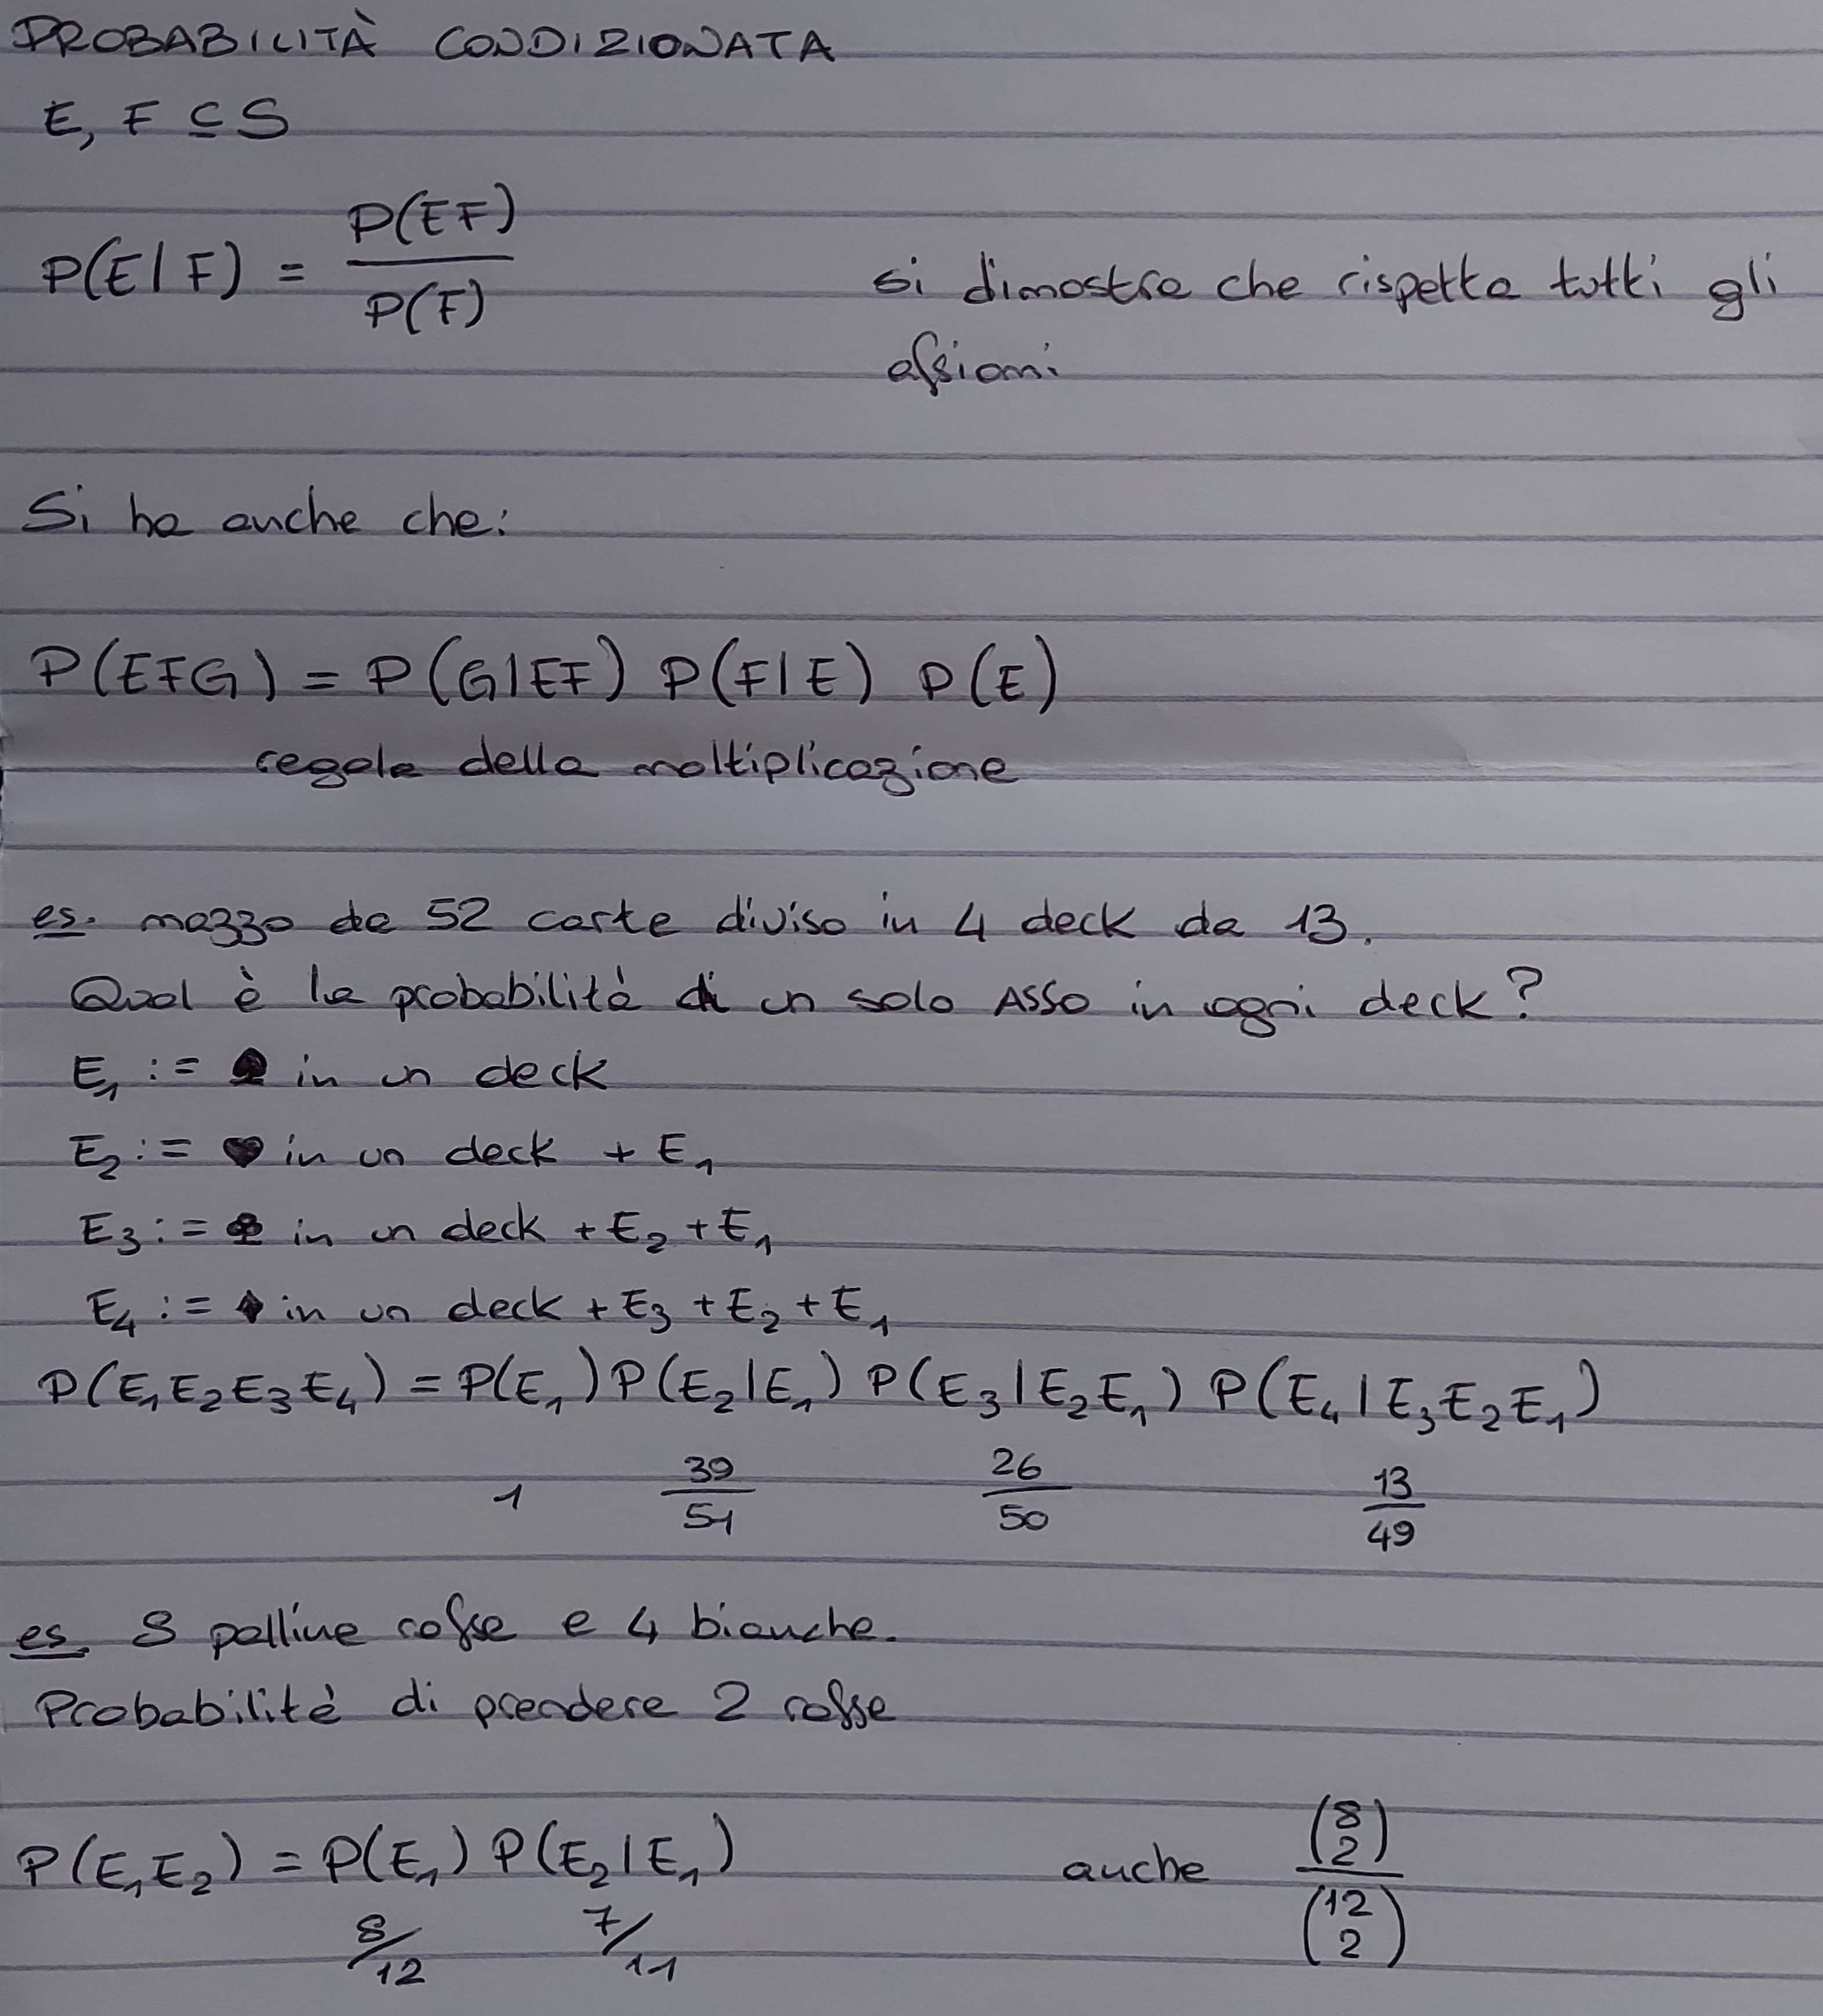 PROBABILITÀ CONDIZIONATA
E, F ⊆ S
P(E|F) = P(EF) / P(F)    si dimostra che rispetta tutti gli
assiomi
Si ha anche che:
P(EFG) = P(G|EF) P(F|E) P(E)
regola della moltiplicazione
es. mazzo da 52 carte diviso in 4 deck da 13.
Qual è la probabilità di un solo ASSO in ogni deck?
E₁ := ♠ in un deck
E₂ := ♥ in un deck + E₁
E₃ := ♣ in un deck + E₂ + E₁
E₄ := ♦ in un deck + E₃ + E₂ + E₁
P(E₁E₂E₃E₄) = P(E₁) P(E₂|E₁) P(E₃|E₂E₁) P(E₄|E₃E₂E₁)
1    39/51    26/50    13/49
es. 8 palline rosse e 4 bianche.
Probabilità di prendere 2 rosse
P(E₁E₂) = P(E₁) P(E₂|E₁)    anche (8 2) / (12 2)
8/12    7/11